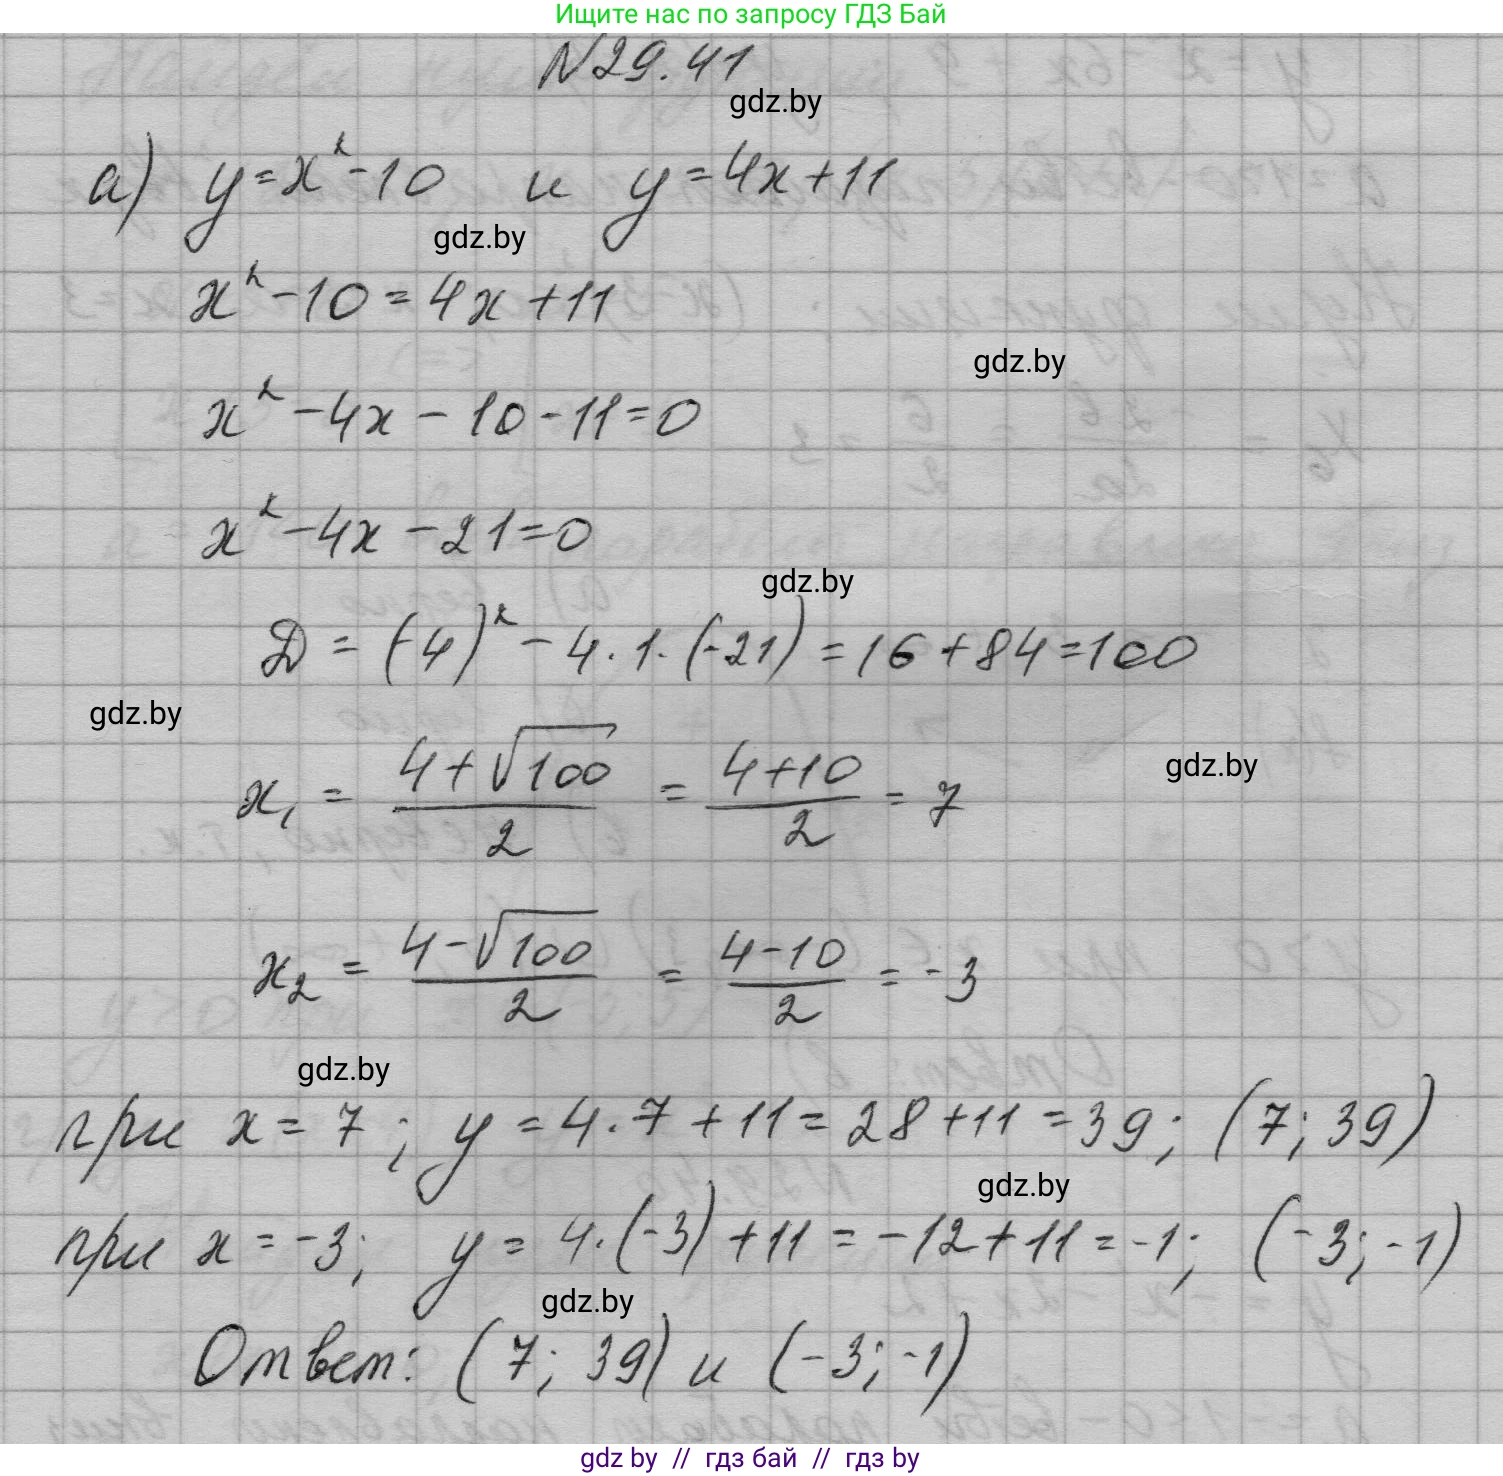 Ищите нас по запросу ГДЗ Бай
№29.41
gdz.by
а) y=x²-10 и y=4x+11
gdz.by
x²-10=4x+11
gdz.by
x²-4x-10-11=0
x²-4x-21=0
gdz.by
D=(-4)²-4·1·(-21)=16+84=100
gdz.by
x₁ = (4+√100)/2 = (4+10)/2 = 7
gdz.by
x₂ = (4-√100)/2 = (4-10)/2 = -3
gdz.by
при x=7; y=4·7+11=28+11=39; (7; 39)
gdz.by
при x=-3; y=4·(-3)+11=-12+11=-1; (-3; -1)
gdz.by
Ответ: (7; 39) и (-3; -1)
gdz by // гдз бай // гдз by